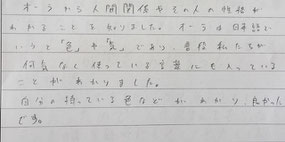 オーラから人間関係やその人の性格が
わかることを知りました。オーラは日本語で
いうと「色」や「気」であり、普段私たちが
何気なく使っている言葉にも入っている
ことがわかりました。
自分の持っている色などがわかり、良かった
です。